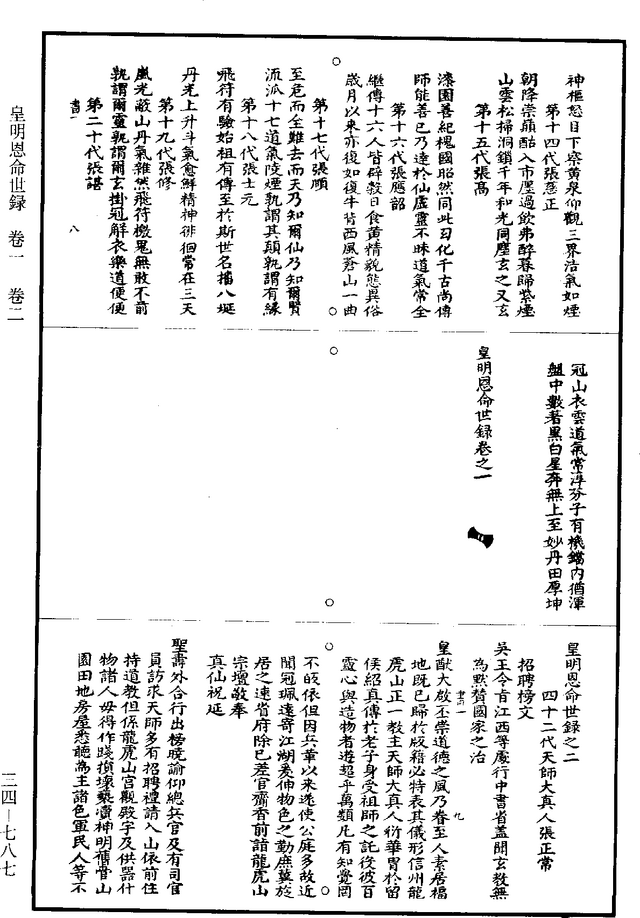 皇明恩命世録 卷一 卷二
三四－七八七
神樞怒目下察黃泉仰觀三界浩氣如煙
第十四代張慈正
朝降崇巔酤入市㕓過飲弗醉暮歸紫煙
山雲松掃洞鎖千年和光同塵玄之又玄
第十五代張高
漆園善紀槐國昭然同此勻化千古尚傳
師能善已乃達於仙虛靈不昧道氣常全
第十六代張應韶
繼傳十六人皆辟穀日食黃精貌態異俗
歲月以來亦復如復牛背西風蒼山一曲
第十七代張順
至危而全難去而天乃知爾仙乃知爾賢
流派十七道氣陵煙孰謂其顛孰謂有緣
第十八代張士元
飛符有驗始祖有傳至於斯世名播八埏
丹光上升斗氣愈鮮精神徘徊常在三天
第十九代張修
嵐光蔽山丹氣雜然飛符檄鬼無敢不前
孰謂爾靈孰謂爾玄掛冠解衣樂道便便
第二十代張諶
書一 八
冠山衣雲道氣常淳芬子有機鐺內猶渾
盤中數著黑白星奔無上至妙丹田厚坤
皇明恩命世録卷之一
皇明恩命世録之二
四十二代天師大真人張正常
招聘榜文
吳王令旨江西等處行中書省蓋聞玄教無
為默贊國家之治
書一 九
皇猷大啟丕崇道德之風乃眷至人素居福
地既已歸於版籍必特表其儀形信州龍
虎山正一教主天師大真人衍華胄於留
侯紹真傳於老子身受祖師之託後彼百
靈心與造物者遊超乎萬類凡有知覺罔
不皈依但因兵革以來迭使公庭多故近
聞冠珮遠寄江湖爰伸物色之勤庶冀旋
居之速省府除已差官齎香前詣龍虎山
宗壇敬奉
真仙祝延
聖壽外合行出榜曉諭仰總兵官及有司官
員訪求天師多有招聘禮請入山依前住
持道教但係龍虎山宮觀殿宇及供器什
物諸人毋得作踐損壞褻瀆神明舊管山
園田地房屋悉聽為主諸色軍民人等不